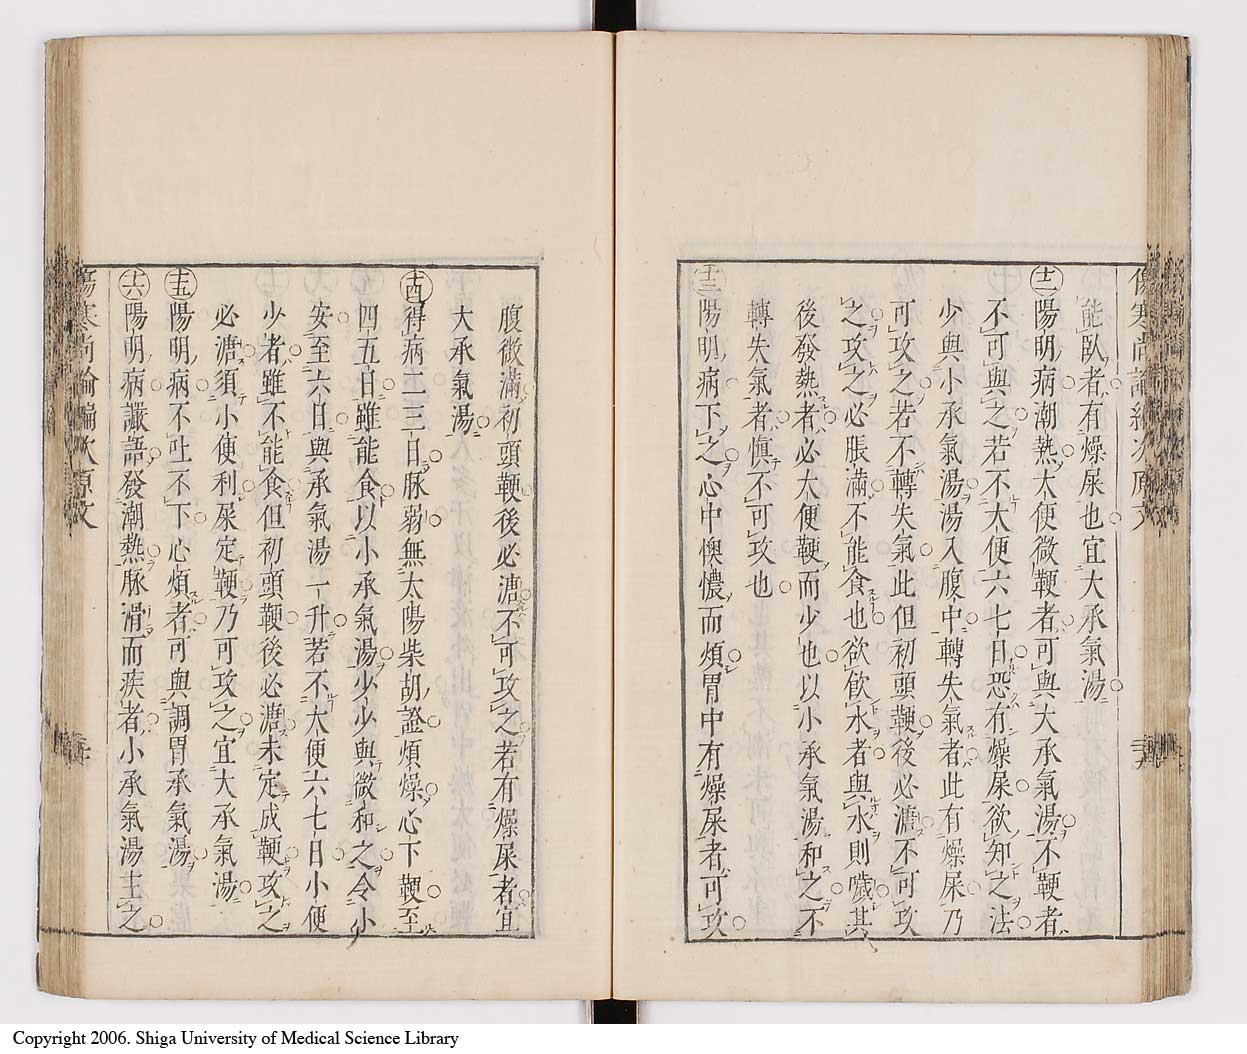 能臥者有燥屎也宜大承氣湯
十二 陽明病潮熱大便微鞕者可與大承氣湯不鞕者
不可與之若不大便六七日恐有燥屎欲知之法
少與小承氣湯湯入腹中轉失氣者此有燥屎乃
可攻之若不轉失氣此但初頭鞕後必溏不可攻
之攻之必脹滿不能食也欲飲水者與水則噦其
後發熱者必大便鞕而少也以小承氣湯和之不
轉失氣者慎不可攻也
十三 陽明病下之心中懊憹而煩胃中有燥屎者可攻
腹微滿初頭鞕後必溏不可攻之若有燥屎者宜
大承氣湯
十四 得病二三日脉弱無太陽柴胡證煩燥心下鞕至
四五日雖能食以小承氣湯少少與微和之令小
安至六日與承氣湯一升若不大便六七日小便
少者雖不能食但初頭鞕後必溏未定成鞕攻之
必溏須小便利屎定鞕乃可攻之宜大承氣湯
十五 陽明病不吐不下心煩者可與調胃承氣湯
十六 陽明病讝語發潮熱脉滑而疾者小承氣湯主之
傷寒尚論編次原文
Copyright 2006. Shiga University of Medical Science Library